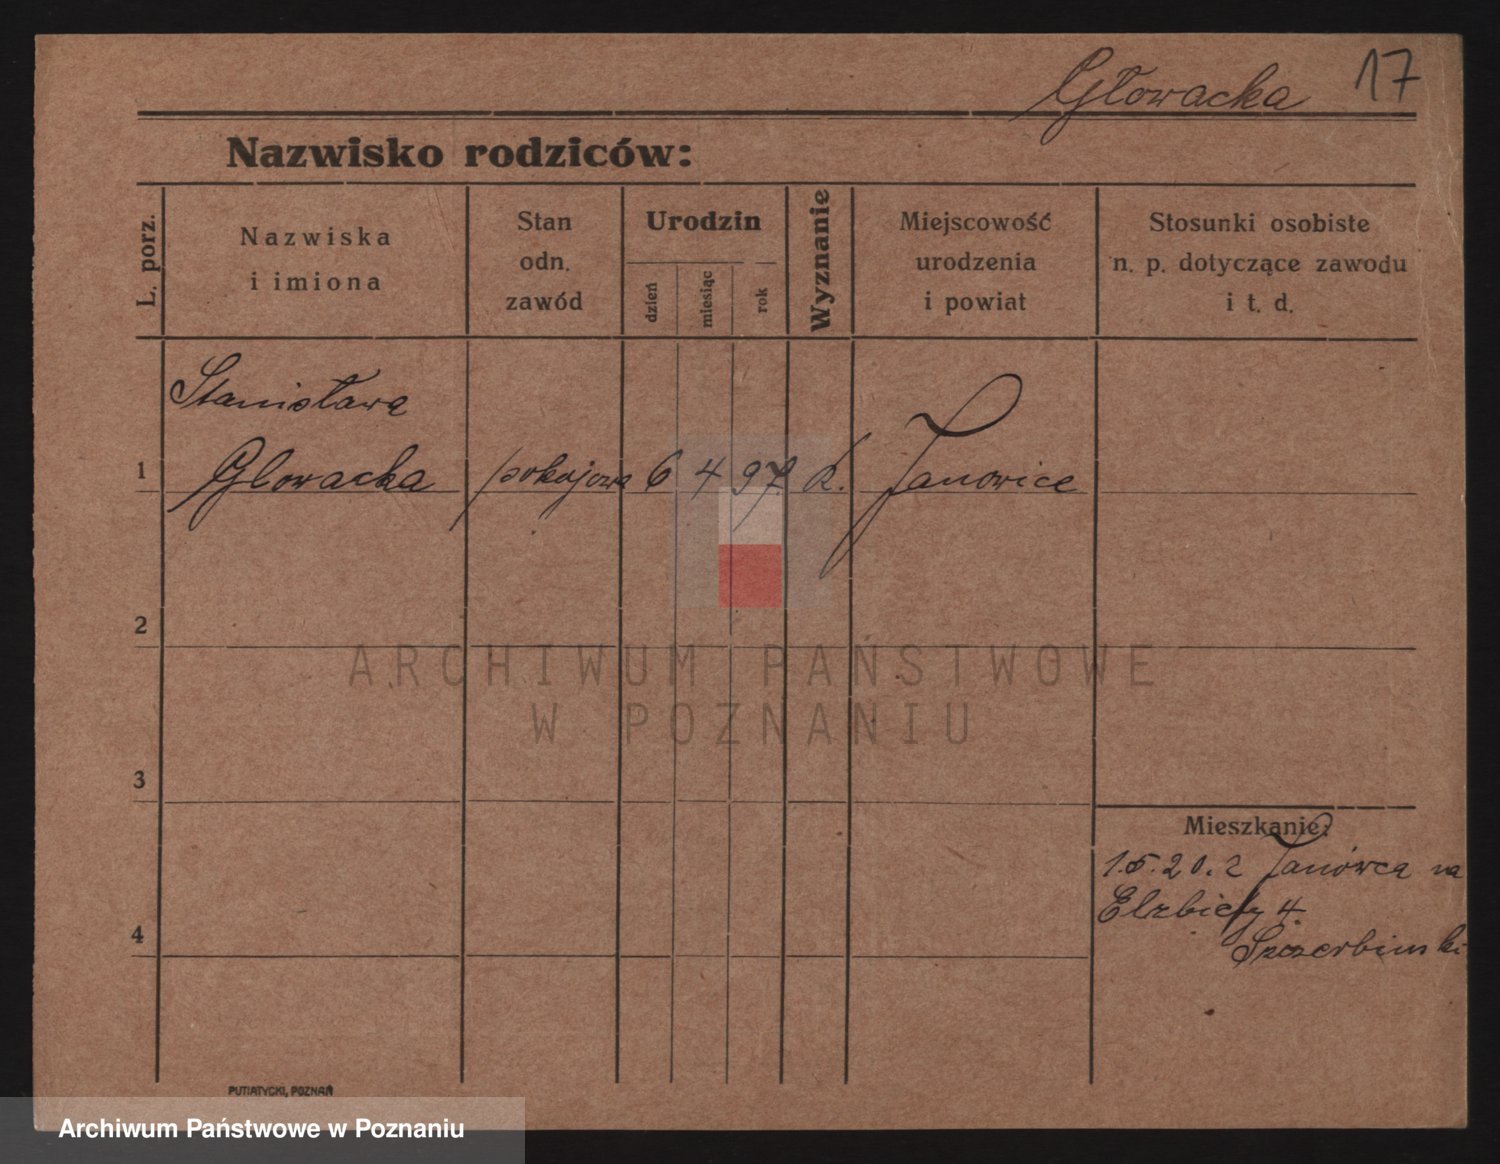 Głowacka 17
Nazwisko rodziców:
L. porz.
Nazwiska
i imiona
Stan
odn.
zawód
Urodzin
dzień
miesiąc
rok
Wyznanie
Miejscowość
urodzenia
i powiat
Stosunki osobiste
n. p. dotyczące zawodu
i t. d.
Stanisława
1 Glowacka pokojowa 6 4 97 K. Janowice
2
ARCHIWUM PAŃSTWOWE
W POZNANIU
3
Mieszkanie:
1.5.20. z Janówca na
Elzbiety 4.
4
Szczerbinski
PUTIATYCKI, POZNAŃ
Archiwum Państwowe w Poznaniu